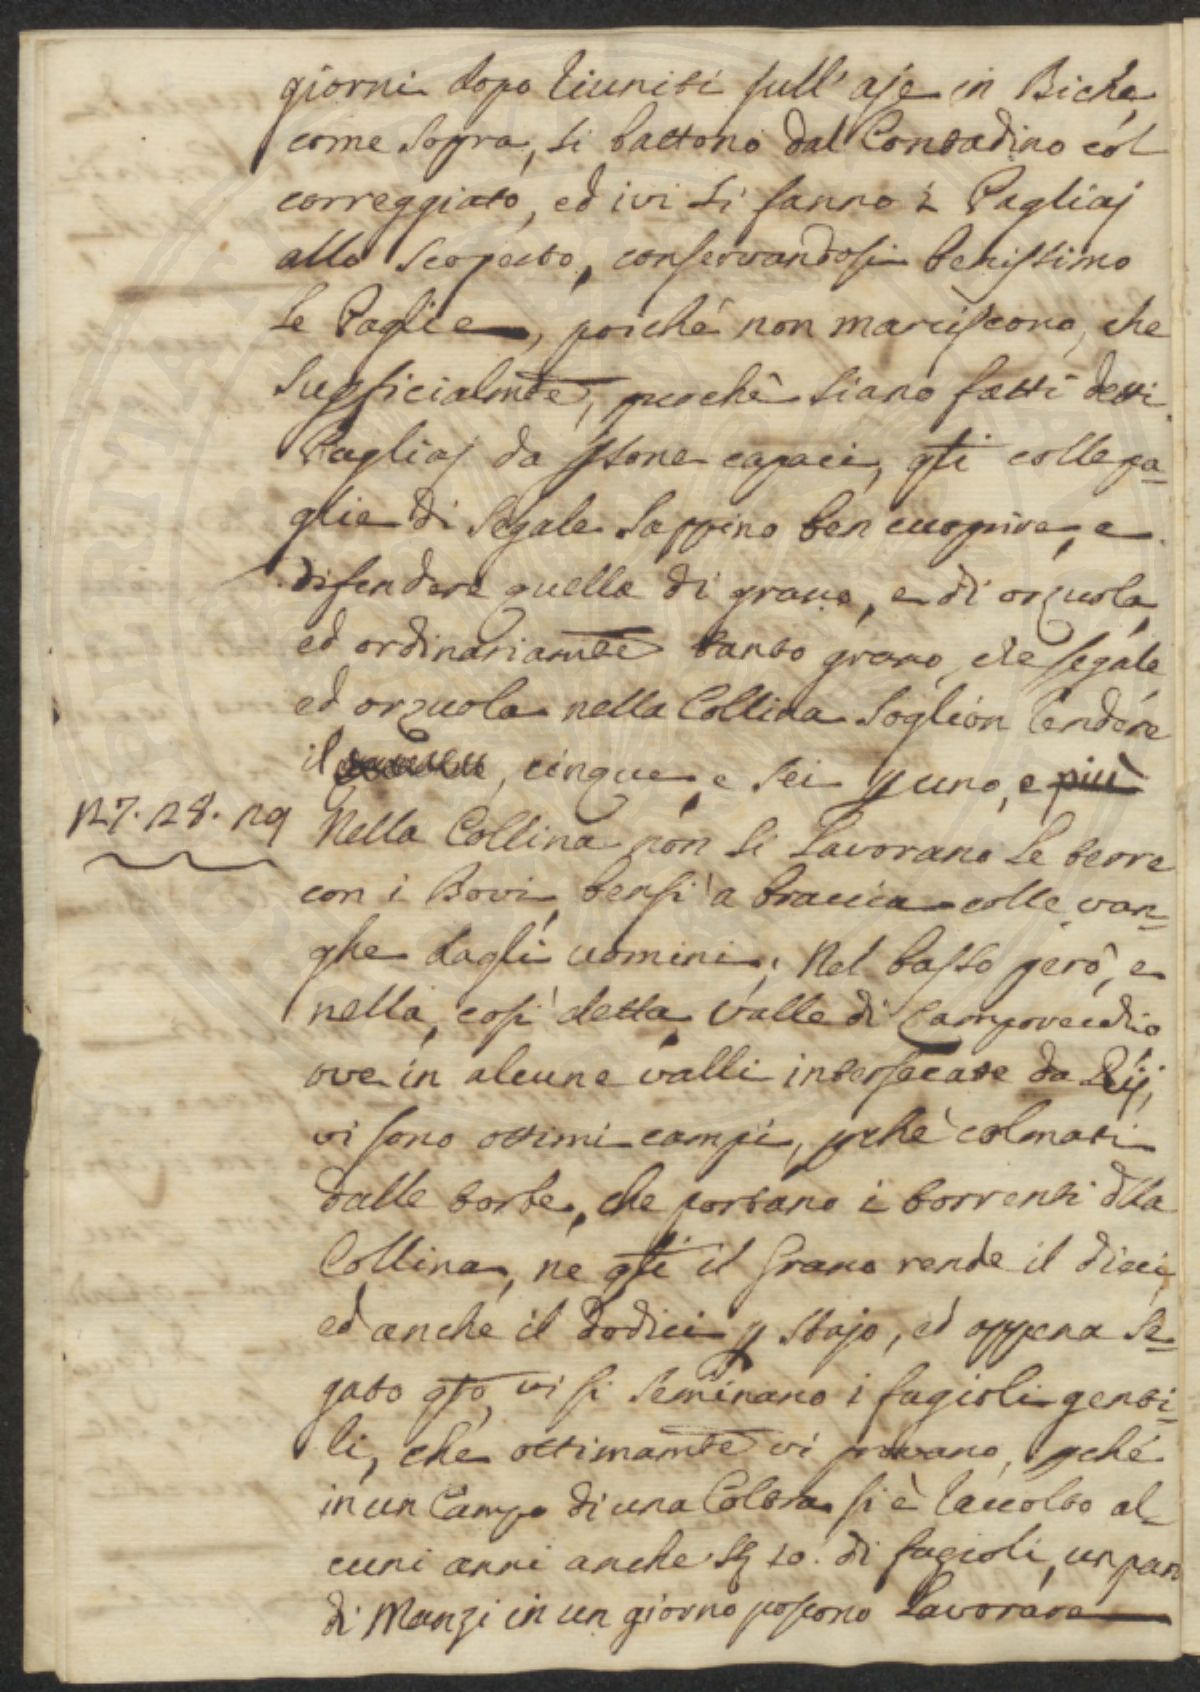 giorni dopo riuniti sull'aje in Biche
come sopra, si battono dal Contadino col
correggiato, ed ivi si fanno i Pagliaj
allo scoperto, conservandosi benissimo
le Paglie, poiché non marciscono, che
supficialmte, purchè siano fatti detti
Pagliaj da psone capaci, qti colle pa-
glie di segale sappino ben cuoprire, e
difendere quelle di grano, e di orzuola,
ed ordinariamte tanto grano, che segale
ed orzuola nella Collina soglion rendere
il, cinque, e sei p uno, e più
127. 128. 129
Nella Collina non si lavorano le terre
con i Bovi, bensì a braccia colle van-
ghe dagli uomini; Nel basso però, e
nella, così detta, Valle di Campovecchio
ove in alcune valli intersecate da Rij,
vi sono ottimi campi, pchè colmati
dalle torbe, che portano i torrenti dlla
Collina, ne qti il Grano rende il dieci
ed anche il dodici p stajo, ed appena se-
gato qto, vi si seminano i fagioli genti-
li, che ottimamte vi provano, pché
in un Campo di una Coltra si è raccolto al-
cuni anni anche 10. di fagioli, un par
di Manzi in un giorno possono lavorare